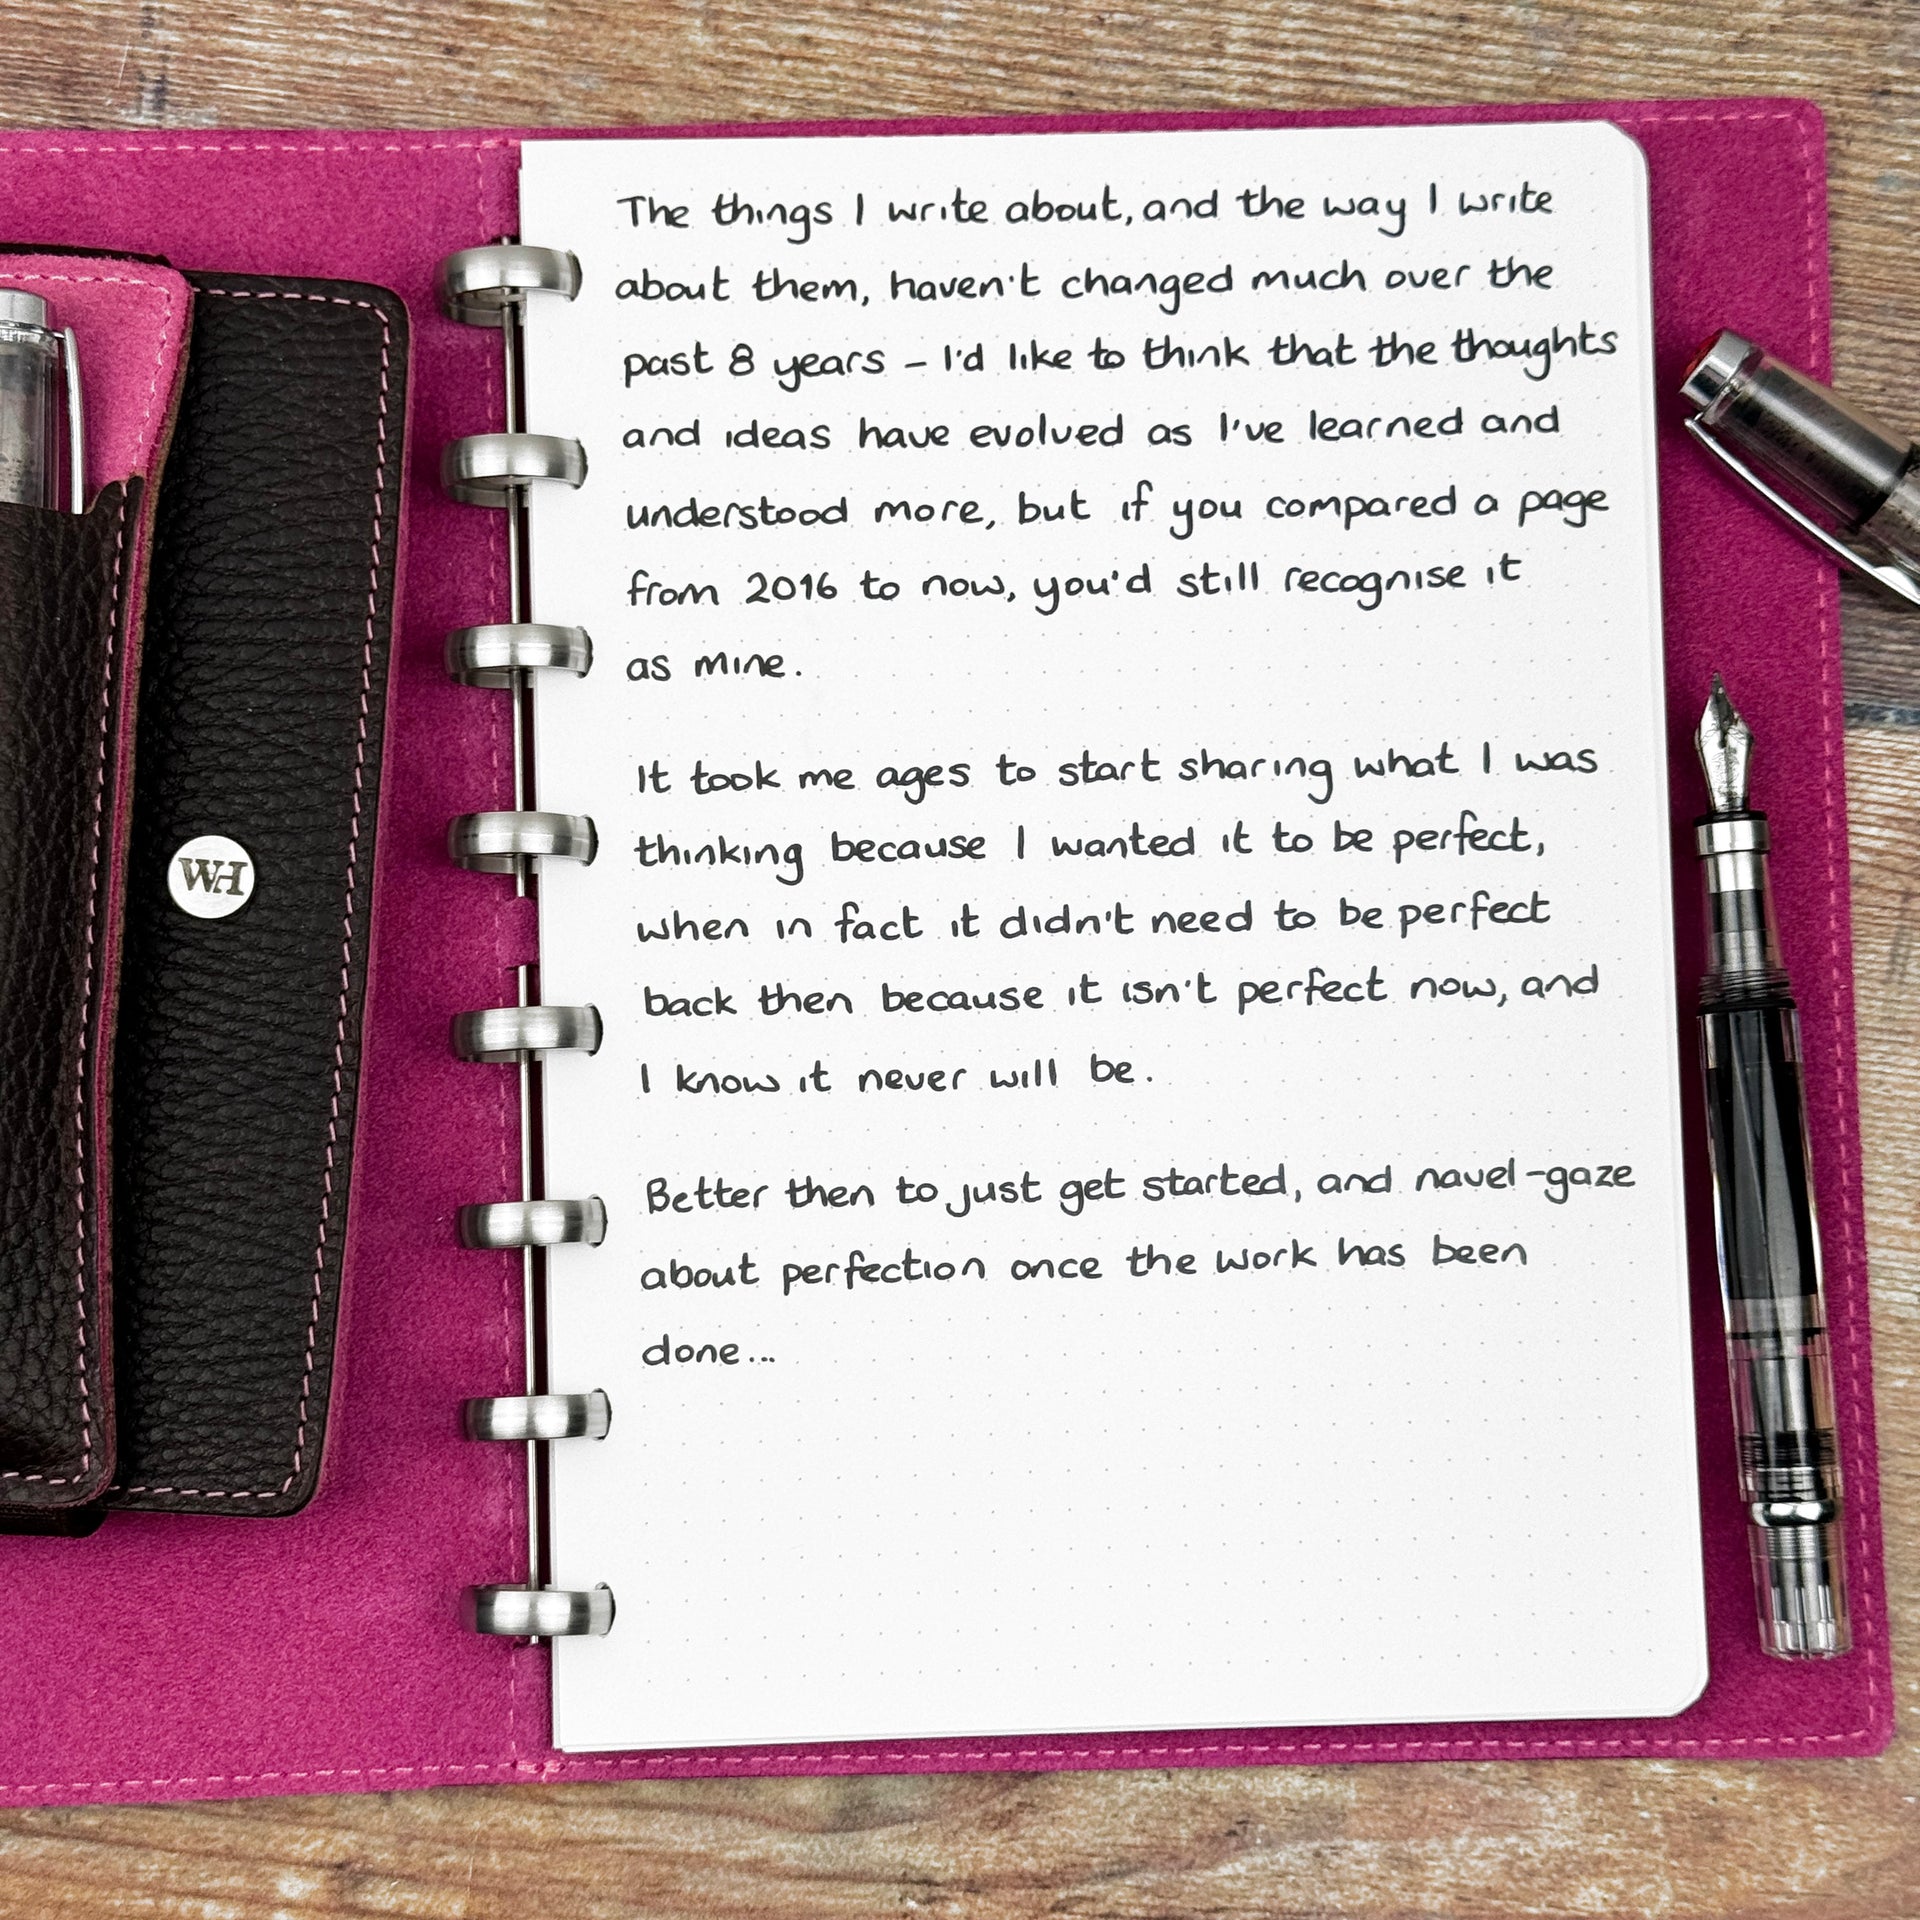 The things I write about, and the way I write
about them, haven't changed much over the
past 8 years – I'd like to think that the thoughts
and ideas have evolved as I've learned and
understood more, but if you compared a page
from 2016 to now, you'd still recognise it
as mine.
It took me ages to start sharing what I was
thinking because I wanted it to be perfect,
when in fact it didn't need to be perfect
back then because it isn't perfect now, and
I know it never will be.
Better then to just get started, and navel-gaze
about perfection once the work has been
done...
WH